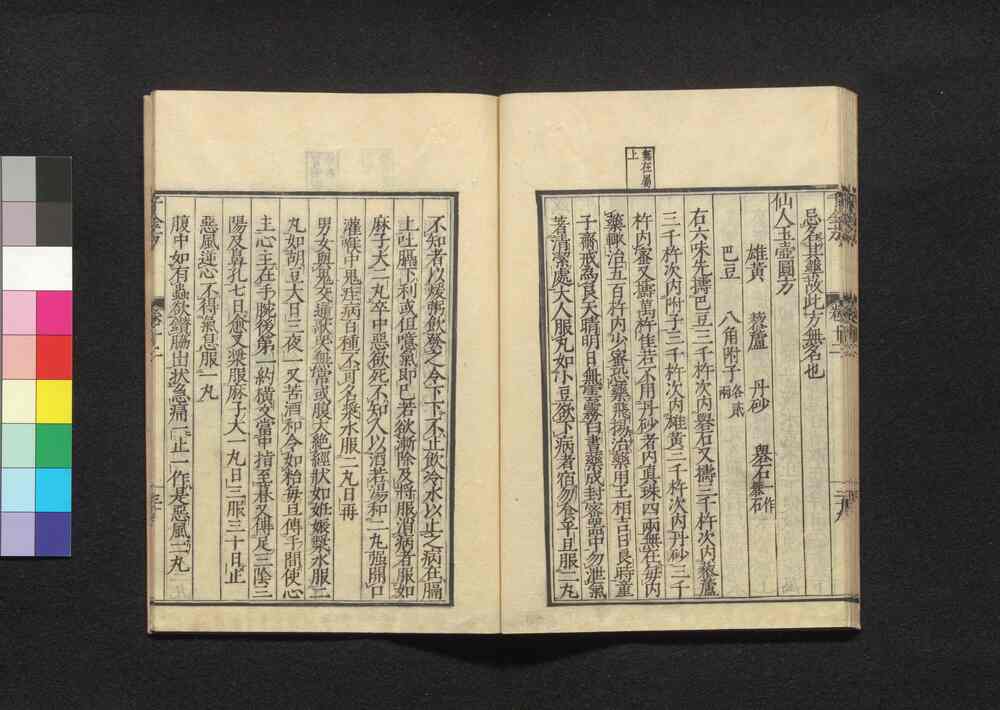 忌名其藥故此方無名也
仙人玉壺圓方
雄黃 藜蘆 丹砂 礜石一作礬石
巴豆 八角附子各貳兩
右六味先擣巴豆三千杵次內礜石又擣三千杵次內藜蘆
三千杵次內附子三千杵次內雄黃三千杵次內丹砂三千
杵內蜜又擣萬杵佳若不用丹砂者內真珠四兩無在每內
藥輒治五百杵內少蜜恐藥飛揚治藥用王相吉日良時童
子齋戒為良天晴明日無雲霧白晝藥成封密器中勿泄氣
著清潔處大人服丸如小豆欲下病者宿勿食平旦服二丸
不知者以暖粥飲發之令下下不止飲冷水以止之病在膈
上吐膈下利或但噫氣即已若欲漸除及將服消病者服如
麻子大二丸卒中惡欲死不知人以酒若湯和二丸強開口
灌喉中鬼疰病百種不可名漿水服二丸日再
男女與鬼交通歌哭無常或腹大絕經狀如妊娠漿水服二
丸如胡豆大日三夜一又苦酒和令如粘每旦傅手間使心
主心主在手腕後第一約橫文當中指至暮又傅足三陰三
陽及鼻孔七日愈又漿服麻子大一丸日三服三十日止
惡風逆心不得氣息服一丸
腹中如有蟲欲鑽脇出狀急痛一止一作是惡風二丸